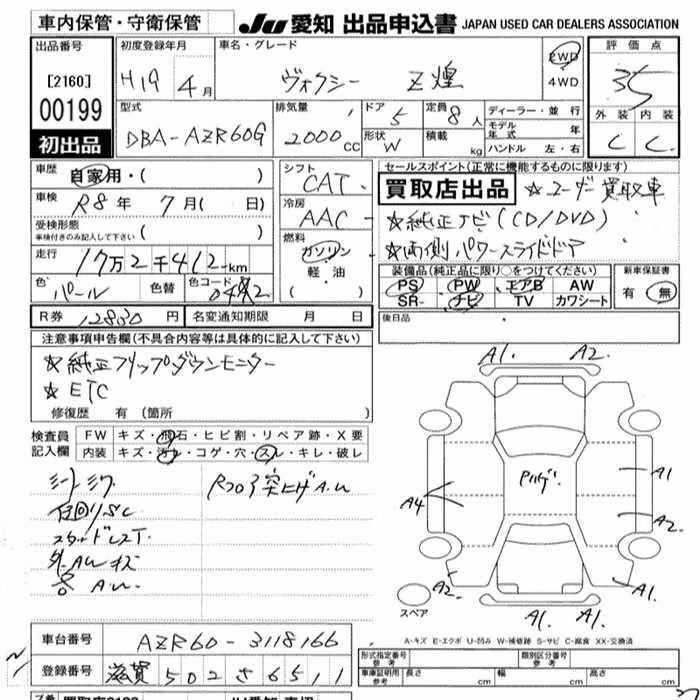 車内保管・守衛保管
JU 愛知 出品申込書 JAPAN USED CAR DEALERS ASSOCIATION
出品番号 初度登録年月 車名・グレード 評価点
[2160]
00199
初出品
H19 4月 ヴォクシー Z煌 2WD
4WD
35
外装 内装
C C
型式 排気量 ドア 定員 ディーラー・並行
DBA-AZR60G 2000cc 5 8人
モデル年式 年
形状 W 積載 kg ハンドル 左・右
車歴 自家用・( )
車検 R8年 7月( 日)
受検形態
車検付きのみ記入して下さい ( )
走行 17万2千412km
色 パール 色替 色コード
R券 12830円 名変通知期限 月 日
シフト CAT
冷房 AAC
燃料 ガソリン
軽油
( )
セールスポイント(正常に機能するものに限ります)
買取店出品 ☆ユーザー買取車
☆純正ナビ(CD/DVD)
☆両側パワースライドドア
装備品(純正品に限り○をつけてください) 新車保証書
PS PW エアB AW 有 無
SR ナビ TV カワシート
後日品
注意事項申告欄(不具合内容等は具体的に記入して下さい)
☆純正フリップダウンモニター
☆ETC
修復歴 有 (箇所 )
検査員 FW キズ・飛石・ヒビ割・リペア跡・X要
記入欄 内装 キズ・汚レ・コゲ・穴・スレ・キレ・破レ
Rフロア突上ゲA.W
スタッドレスT.
A1. A2.
A1
A4
A2
A2. A1.
A1. A1.
スペア
A-キズ E-エクボ U-凹み W-補修跡 S-サビ C-腐食 XX-交換済
車台番号 AZR60-3118166
登録番号 滋賀 502 さ 6511
形式指定番号 参考 類別区分番号 参考
車庫証明用 参考 長さ cm 幅 cm 高さ cm